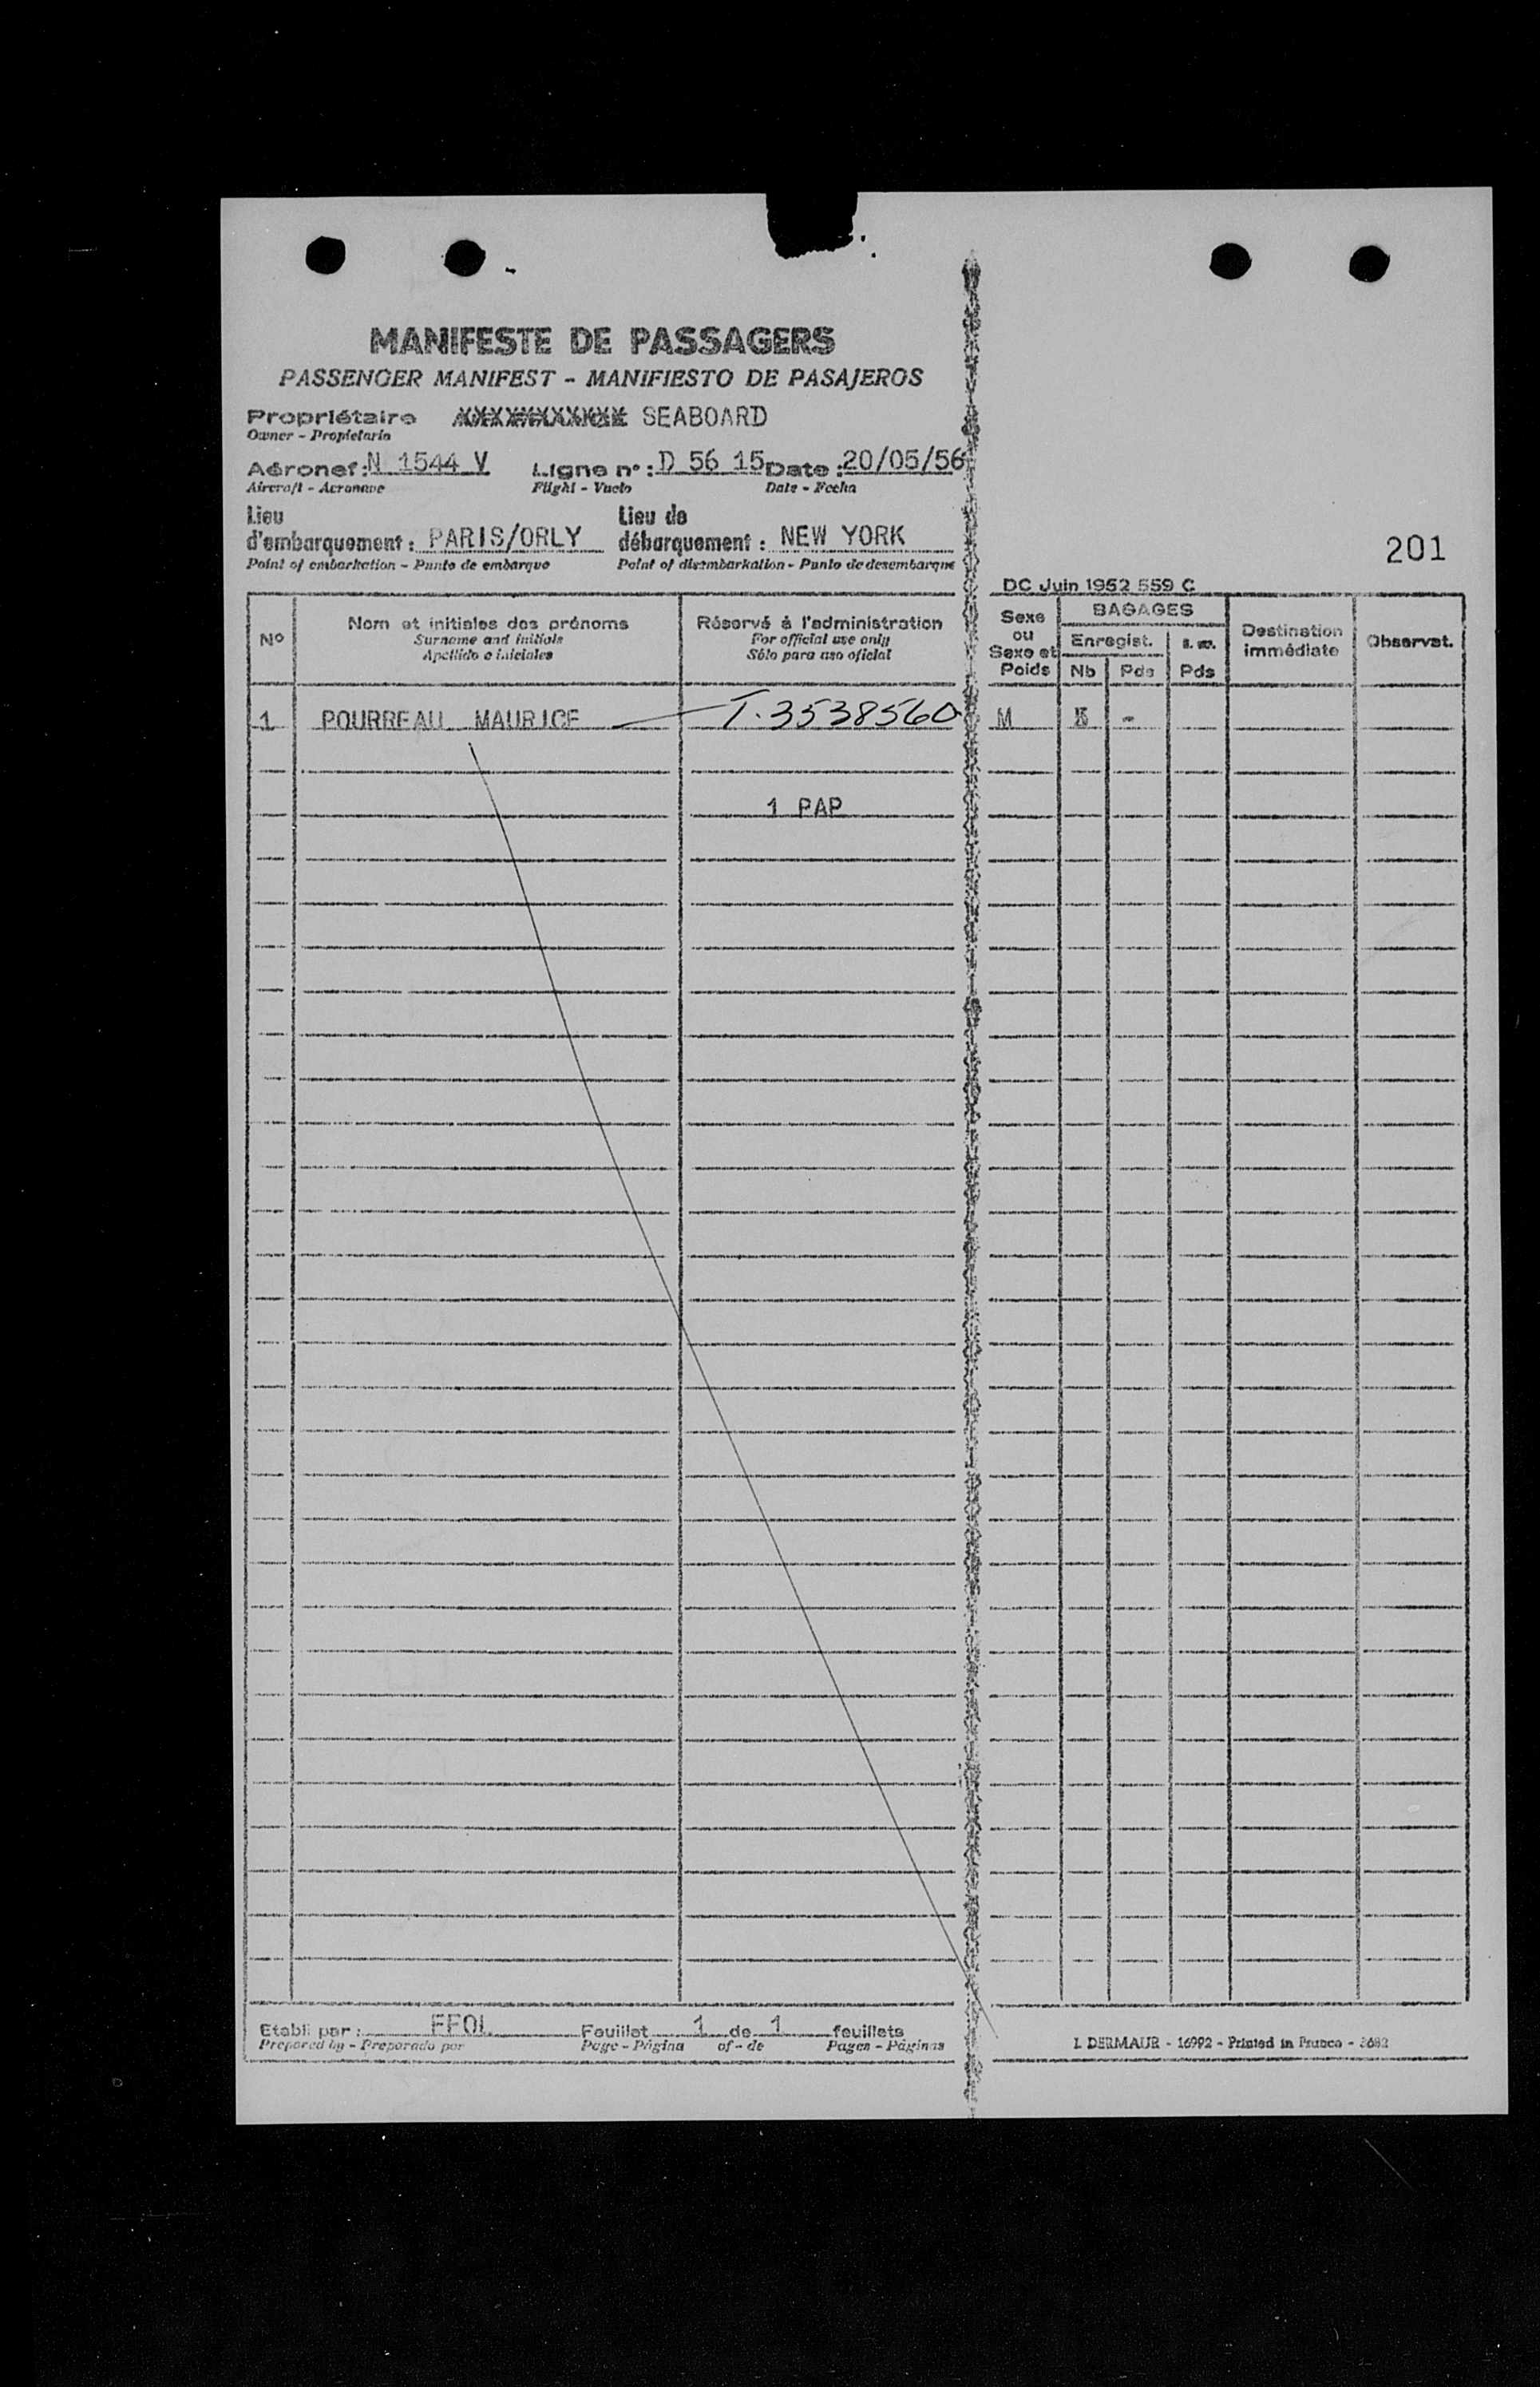 MANIFESTE DE PASSAGERS
PASSENGER MANIFEST - MANIFIESTO DE PASAJEROS
Propriétaire SEABOARD
Owner - Propietario
Aéronef : N 1544 V Ligne n° : D 56 15 Date : 20/05/56
Aircraft - Aeronave Flight - Vuelo Date - Fecha
Lieu d'embarquement : PARIS/ORLY Lieu de débarquement : NEW YORK
Point of embarkation - Punto de embarque Point of disembarkation - Punto de desembarque
201
DC Juin 1952 559 C
N° Nom et initiales des prénoms Réservé à l'administration Sexe ou Sexe et Poids BAGAGES Destination immédiate Observat.
Surname and initials For official use only Enregist.
Apellido e iniciales Sólo para uso oficial Nb Pds Pds
1 POURREAU MAURICE T.3538560 M -
1 PAP
Etabli par : FFOL Feuillet 1 de 1 feuillets
Prepared by - Preparado por Page - Página of - de Pages - Páginas
I. DERMAUR - 16992 - Printed in France